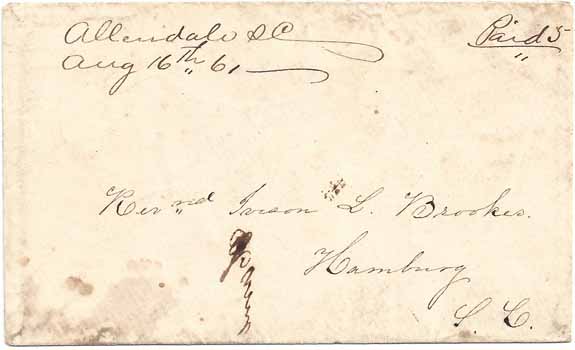 Allendale S C
Aug 16th 61
Paid 5
Revnd Iveson L. Brookes.
Hamburg
S. C.